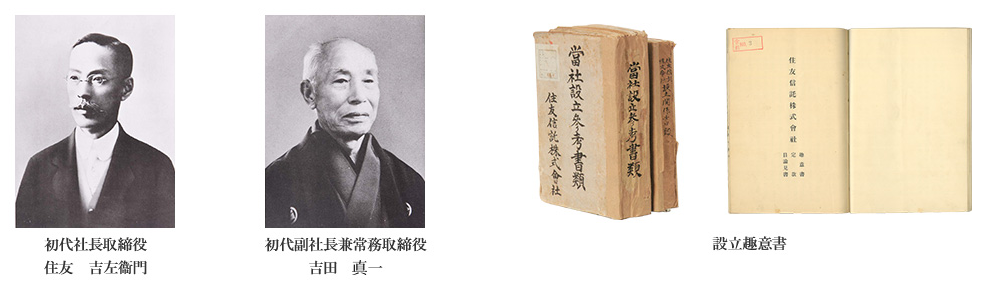 初代社長取締役
住友　吉左衞門
初代副社長兼常務取締役
吉田　真一
當社設立参考書類
住友信託株式會社
當社設立参考書類
住友信託株式會社
趣意書
定款
目論見書
設立趣意書